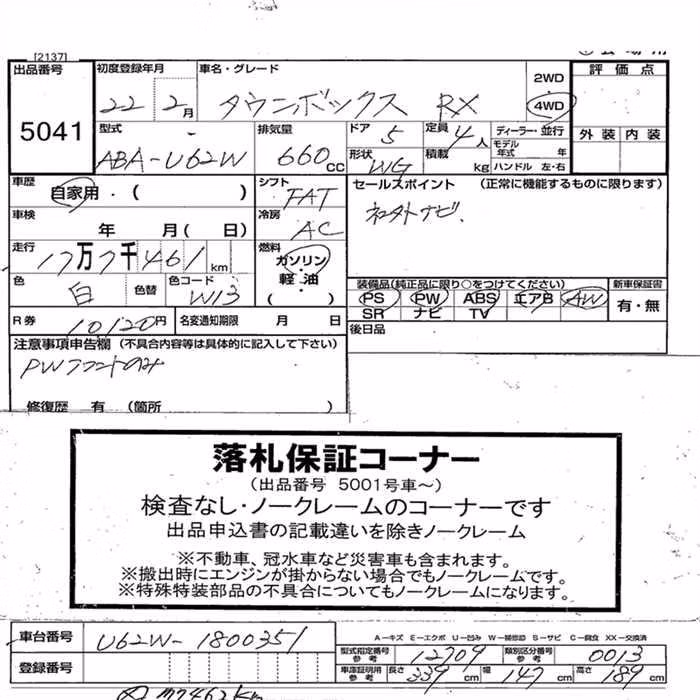 [2137]
出品番号 5041
初度登録年月 22 2月
車名・グレード タウンボックス RX
2WD
4WD
評価点
外装 内装
型式 ABA-U62W
排気量 660CC
ドア 5
定員 4人
ディーラー・並行
モデル年式 年
形状 WG
積載 kg
ハンドル 左・右
車歴 自家用・( )
シフト FAT
セールスポイント (正常に機能するものに限ります)
社外ナビ
車検 年 月(日)
冷房 AC
走行 17万7千461km
燃料 ガソリン
軽油
( )
色 白 色替 色コード W13
装備品(純正品に限り○をつけてください)
PS PW ABS エアB AW
SR ナビ TV
新車保証書
有・無
R券 10120円
名変通知期限 月 日
後日品
注意事項申告欄(不具合内容等は具体的に記入して下さい)
PWフロントのみ
修復歴 有 (箇所 )
落札保証コーナー
(出品番号 5001号車～)
検査なし・ノークレームのコーナーです
出品申込書の記載違いを除きノークレーム
※不動車、冠水車など災害車も含まれます。
※搬出時にエンジンが掛からない場合でもノークレームです。
※特殊特装部品の不具合についてもノークレームになります。
A-キズ E-エクボ U-凹み W-補修跡 S-サビ C-腐食 XX-交換済
車台番号 U62W-1800351
型式指定番号 参考 12709
類別区分番号 参考 0013
登録番号
車庫証明用 参考 長さ 339cm 幅 147cm 高さ 189cm